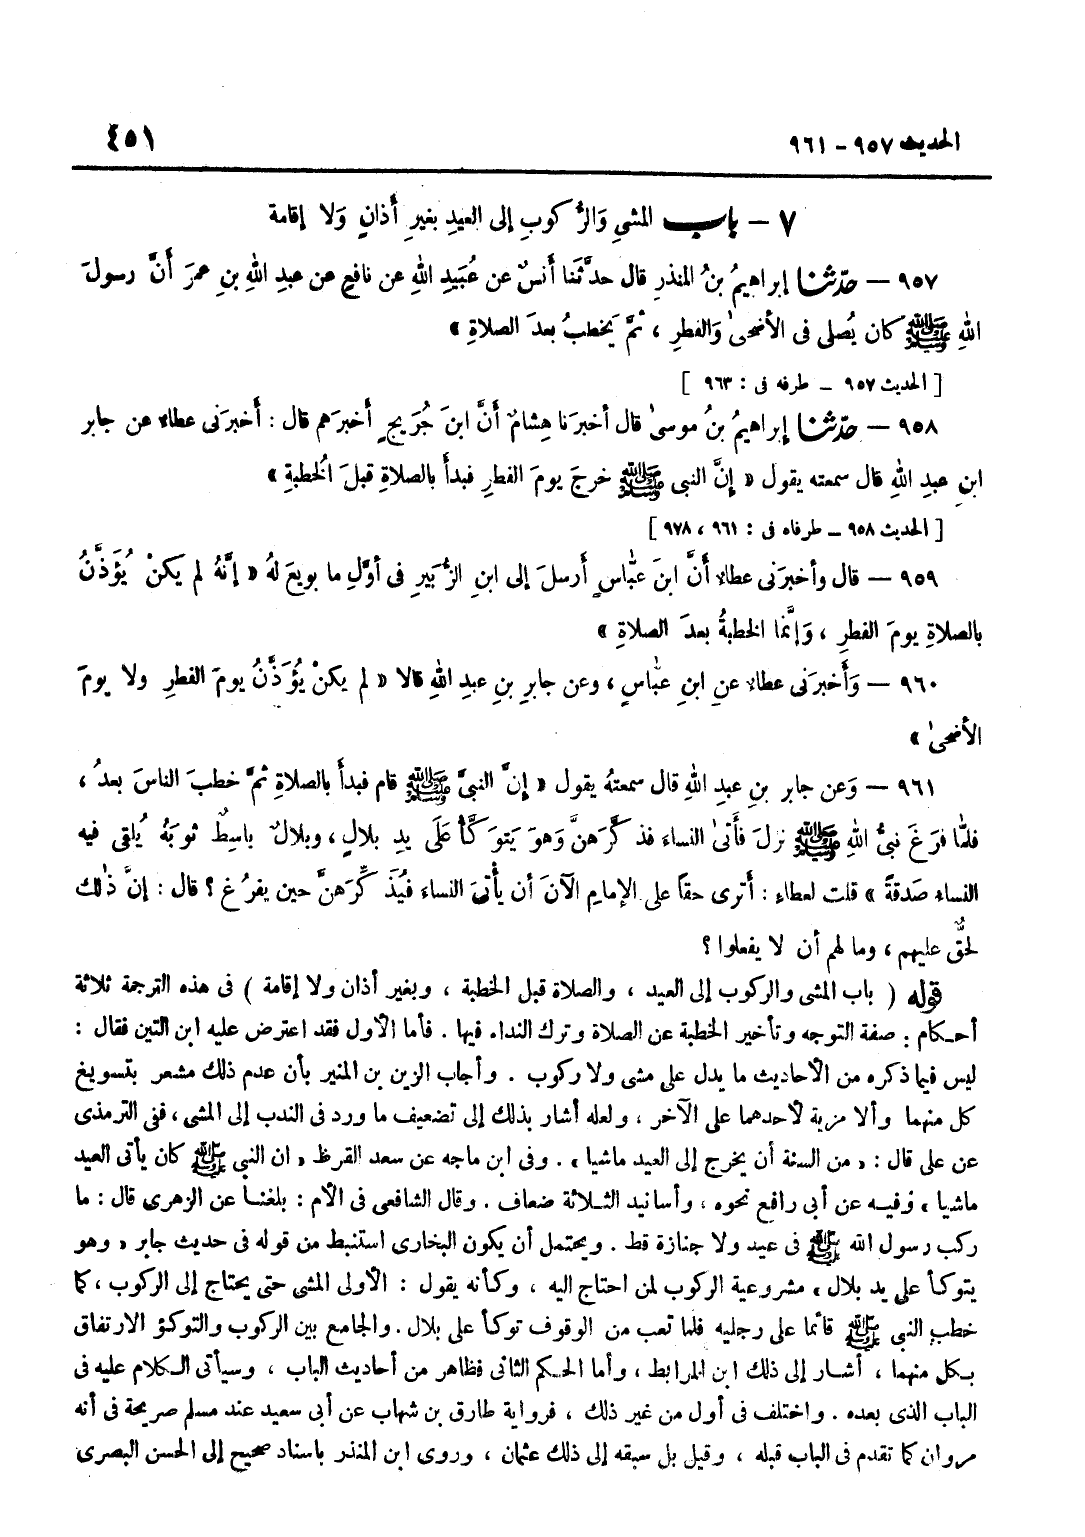 الحديث ٩٥٧ - ٩٦١
٤٥١
٧ — باب المشيِ وَالرُّكوبِ إلى العيدِ بغيرِ أَذانٍ وَلا إقامة
٩٥٧ — حدّثنا إبراهيمُ بنُ المنذرِ قال حدَّثَنا أنسٌ عن عُبَيدِ اللهِ عن نافعٍ عن عبدِ اللهِ بنِ عمرَ أَنَّ رسولَ
اللهِ ﷺ كان يُصلى فى الأضحىٰ وَالفطرِ ، ثمَّ يَخطبُ بعدَ الصلاةِ »
[ الحديث ٩٥٧ ـ طرفه فى : ٩٦٣ ]
٩٥٨ — حدّثنا إبراهيمُ بنُ موسىٰ قال أخبرَنا هِشامٌ أنَّ ابنَ جُرَيجٍ أخبرَهم قال : أخبرَنى عطاءٌ عن جابرِ
ابنِ عبدِ اللهِ قال سمعته يقول « إنَّ النبى ﷺ خرجَ يومَ الفطرِ فبدأَ بالصلاةِ قبلَ الخُطبةِ »
[ الحديث ٩٥٨ ـ طرفاه فى : ٩٦١ ، ٩٧٨ ]
٩٥٩ — قال وأخبرَنى عطاءٌ أنَّ ابنَ عبّاسٍ أرسلَ إلى ابنِ الزُّبَيرِ فى أوّلِ ما بويعَ لهُ « إنَّهُ لم يكنْ يُؤَذَّنُ
بالصلاةِ يومَ الفطرِ ، وَإنَّما الخطبةُ بعدَ الصلاةِ »
٩٦٠ — وَأخبرَنى عطاءٌ عنِ ابنِ عبّاسٍ ، وعن جابرِ بنِ عبدِ اللهِ قالا « لم يكنْ يُؤَذَّنُ يومَ الفطرِ ولا يومَ
الأضحىٰ »
٩٦١ — وَعن جابرِ بنِ عبدِ اللهِ قال سمعتهُ يقول « إنَّ النبىَّ ﷺ قام فبدأَ بالصلاةِ ثمَّ خطبَ الناسَ بعدُ ،
فلمّا فرَغَ نبىُّ اللهِ ﷺ نزلَ فأتىٰ النساءَ فذكَّرَهنَّ وَهوَ يَتوكَّأُ عَلَى يدِ بلالٍ ، وبلالٌ باسِطٌ ثوبَهُ يُلقى فيه
النساءُ صَدقةً » قلت لعطاءٍ : أَترى حقاً على الإمامِ الآنَ أن يأتىَ النساءَ فيُذَكِّرَهنَّ حين يفرُغ ؟ قال : إنَّ ذٰلك
لحقٌّ عليهم ، وما لهم أن لا يفعلوا ؟
قوله ( باب المشى والركوب إلى العيد ، والصلاة قبل الخطبة ، وبغير أذان ولا إقامة ) فى هذه الترجمة ثلاثة
أحكام : صفة التوجه وتأخير الخطبة عن الصلاة وترك النداء فيها . فأما الأول فقد اعترض عليه ابن التين فقال :
ليس فيما ذكره من الأحاديث ما يدل على مشى ولا ركوب . وأجاب الزين بن المنير بأن عدم ذلك مشعر بتسويغ
كل منهما وألا مزية لأحدهما على الآخر ، ولعله أشار بذلك إلى تضعيف ما ورد فى الندب إلى المشى ، ففى الترمذى
عن على قال : « من السنة أن يخرج إلى العيد ماشيا » . وفى ابن ماجه عن سعد القرظ « ان النبى ﷺ كان يأتى العيد
ماشيا » وفيه عن أبى رافع نحوه ، وأسانيد الثلاثة ضعاف . وقال الشافعى فى الأم : بلغنا عن الزهرى قال : ما
ركب رسول الله ﷺ فى عيد ولا جنازة قط . ويحتمل أن يكون البخارى استنبط من قوله فى حديث جابر « وهو
يتوكأ على يد بلال » مشروعية الركوب لمن احتاج اليه ، وكأنه يقول : الأولى المشى حتى يحتاج إلى الركوب ، كما
خطب النبى ﷺ قائما على رجليه فلما تعب من الوقوف توكأ على بلال . والجامع بين الركوب والتوكؤ الارتفاق
بكل منهما ، أشار إلى ذلك ابن المرابط ، وأما الحكم الثانى فظاهر من أحاديث الباب ، وسيأتى الكلام عليه فى
الباب الذى بعده . واختلف فى أول من غير ذلك ، فرواية طارق بن شهاب عن أبى سعيد عند مسلم صريحة فى أنه
مروان كما تقدم فى الباب قبله ، وقيل بل سبقه إلى ذلك عثمان ، وروى ابن المنذر باسناد صحيح إلى الحسن البصرى